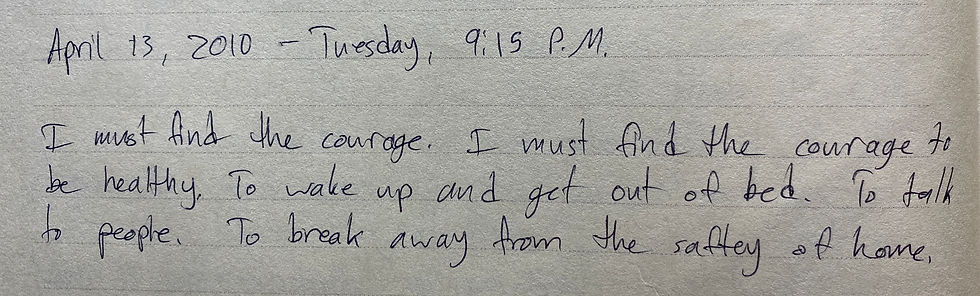 April 13, 2010 - Tuesday, 9:15 P.M.
I must find the courage. I must find the courage to
be healthy. To wake up and get out of bed. To talk
to people. To break away from the saftey of home.